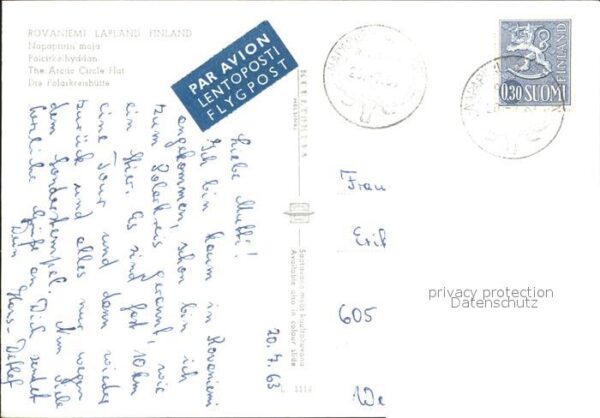 ROVANIEMI LAPLAND FINLAND
Napapiirin maja
Polcirkelhyddan
The Arctic Circle Hut
Die Polarkreishütte
PAR AVION
LENTOPOSTI
FLYGPOST
FINLAND
0,30 SUOMI
20.7.63
Liebe Mutti!
Ich bin kaum in Rovaniemi
angekommen, schon bin ich
zum Polarkreis gerannt, wie
ein Stier. Es sind fast 10 km
eine Tour und dann wieder
zurück und alles nur wegen
dem Sonderstempel. Nun viele
herzliche Grüße an Dich sendet
Dein Hans-Detlef
Saatavana myös kuultokuvana
Available also in colour slide
Frau
Erik
605
We
privacy protection
Datenschutz